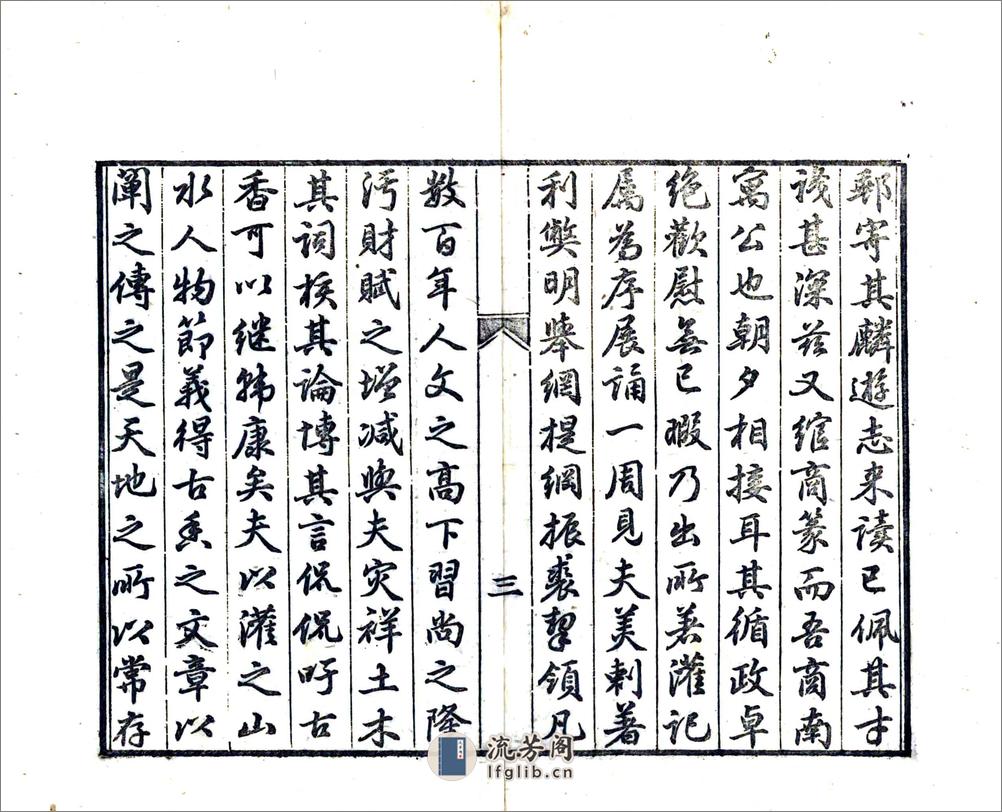 郵寄其麟遊志来读已佩其才
識甚深茲又綰商篆而吾商南
寓公也朝夕相接耳其循政卓
绝歡慰無已暇乃出所著灌记
属為序展誦一周見夫美刺著
利弊明举網提綱振裘挈領凡
三
数百年人文之高下習尚之隆
污財賦之增减與夫灾祥土木
其词核其論博其言侃侃吁古
香可以继韩康矣夫以灌之山
水人物節義得古香之文章以
闡之傳之是天地之所以常存
流芳阁
lfglib.cn